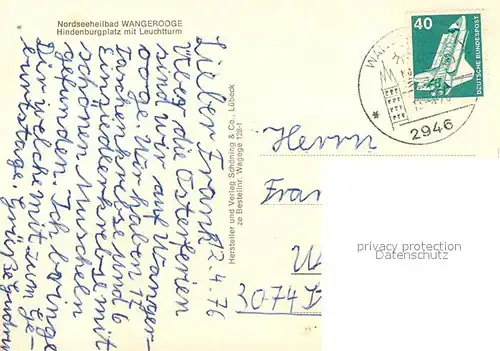 Nordseeheilbad WANGEROOGE
Hindenburgplatz mit Leuchtturm
Lieber Frank
12.4.76
Über die Osterferien
sind wir auf Wanger-
ooge. Wir haben 17
Taschenkrebse und 6
Einsiedlerkrebse mit
schönen Muscheln
gefunden. Ich bringe
Dir welche mit zum Ge-
burtstage.
Hersteller und Verlag Schöning & Co., Lübeck
ze Bestellnr. Wagoge 128-f
40
DEUTSCHE BUNDESPOST
2946
Herrn
Fran
W
3074
privacy protection
Datenschutz